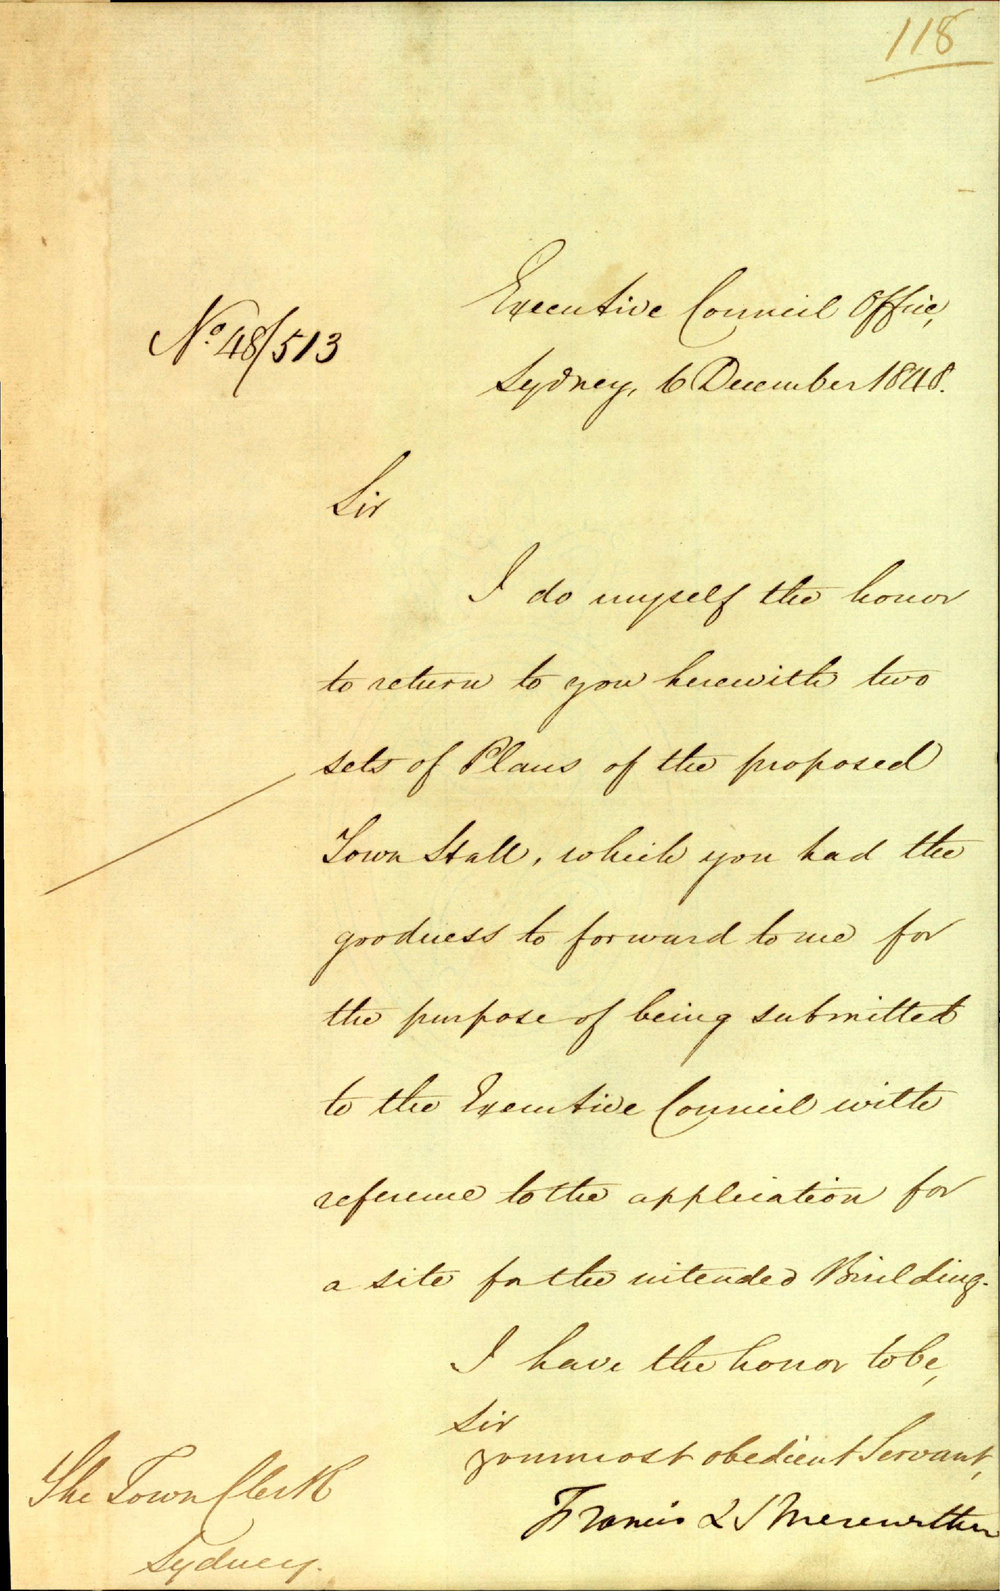 118
No. 48/513
Executive Council Office,
Sydney, 6 December 1848.
Sir
I do myself the honor
to return to you herewith two
sets of Plans of the proposed
Town Hall, which you had the
goodness to forward to me for
the purpose of being submitted
to the Executive Council with
reference to the application for
a site for the intended Building.
I have the honor to be,
Sir
your most obedient Servant,
Francis L S Merewether
The Town Clerk
Sydney.